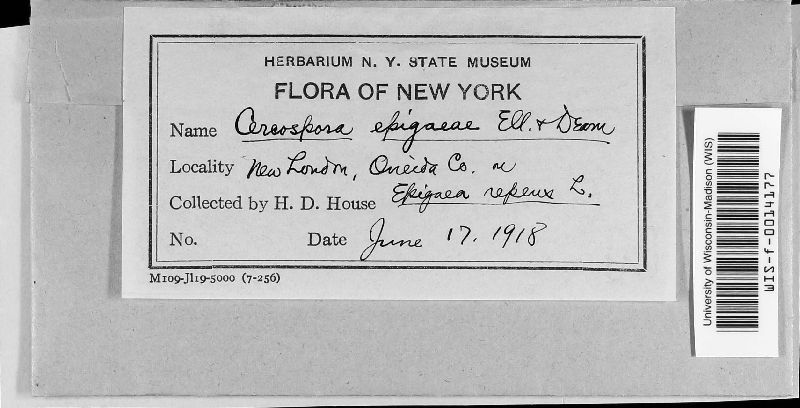 HERBARIUM N. Y. STATE MUSEUM
FLORA OF NEW YORK
Name Cercospora epigaeae Ell. & Dearn
Locality New London, Oneida Co. on
Collected by H. D. House Epigaea repens L.
No. Date June 17. 1918
M109-Jl19-5000 (7-256)
University of Wisconsin-Madison (WIS)
WIS-f-0014177